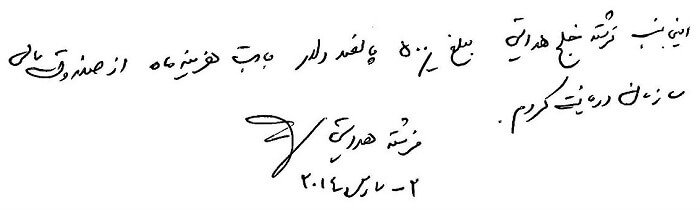 اینجانب فرشته خلج هدایتی مبلغ ۵۰۰/ پانصد دلار بابت هزینه ماه از صندوق مالی
سازمان دریافت کردم.
فرشته هدایتی
۲ - مارس ۲۰۱۴